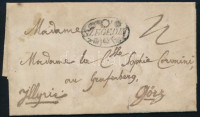 Madame
Madame la Ctesse Sophie Coronini
au Grafenberg,
Illyrie Görz